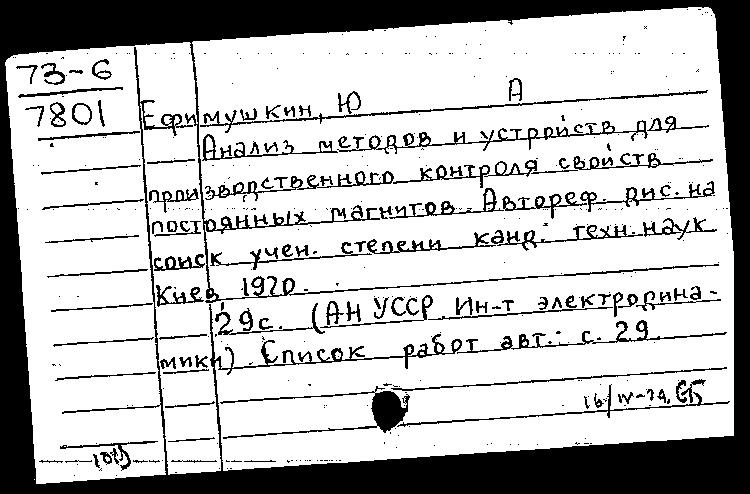 73-6
7801
Ефимушкин, Ю А
Анализ методов и устройств для
производственного контроля свойств
постоянных магнитов. Автореф. дис. на
соиск учен. степени канд. техн. наук
Киев 1970.
29с. (АН УССР. Ин-т электродина-
мики). Список работ авт.: с. 29.
16/IV-74.